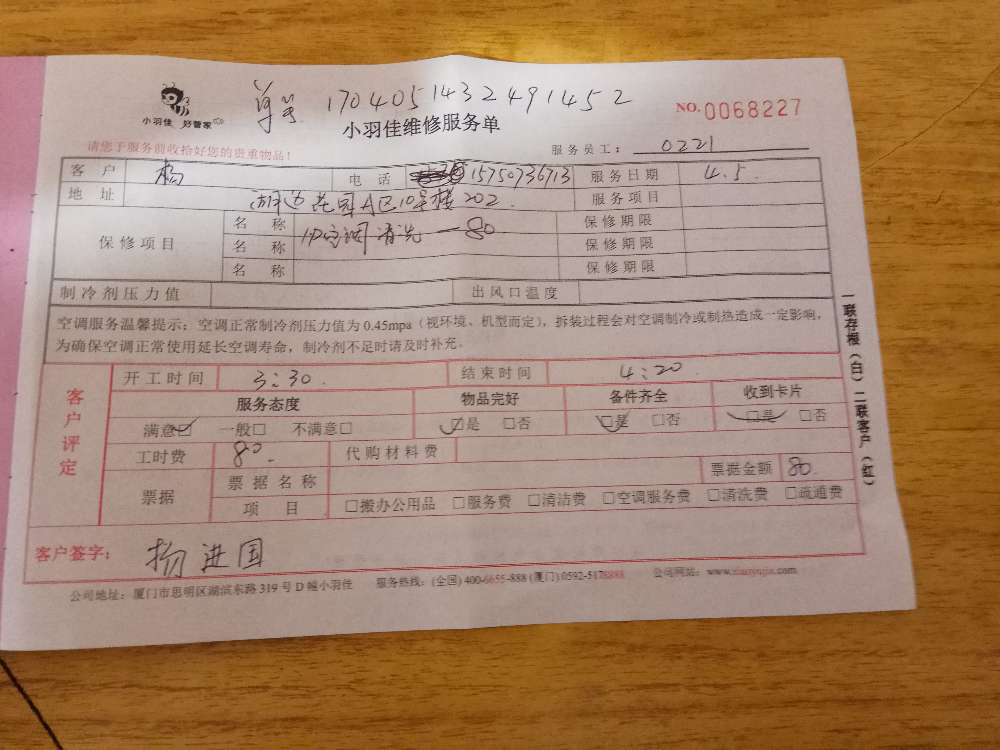 单号 1704051432491452
小羽佳 好管家
小羽佳维修服务单
NO.0068227
请您于服务前收拾好您的贵重物品！
服务员工： 0221
客户 杨 电话 15750736713 服务日期 4.5.
地址 湖边花园A区10号楼202 服务项目
保修项目 名称 空调清洗一80 保修期限
名称 保修期限
名称 保修期限
制冷剂压力值 出风口温度
空调服务温馨提示：空调正常制冷剂压力值为0.45mpa（视环境、机型而定），拆装过程会对空调制冷或制热造成一定影响，
为确保空调正常使用延长空调寿命，制冷剂不足时请及时补充。
客户评定
开工时间 3:30. 结束时间 4:20.
服务态度 物品完好 备件齐全 收到卡片
满意☑ 一般□ 不满意□ ☑是 □否 ☑是 □否 ☑是 □否
工时费 80. 代购材料费
票据 票据名称 票据金额 80.
项目 □搬办公用品 □服务费 □清洁费 □空调服务费 □清洗费 □疏通费
客户签字： 杨进国
公司地址：厦门市思明区湖滨东路319号D幢小羽佳 服务热线：(全国)400-6655-888 (厦门)0592-5178888 公司网站：www.xiaoyujia.com
一联存根（白）二联客户（红）